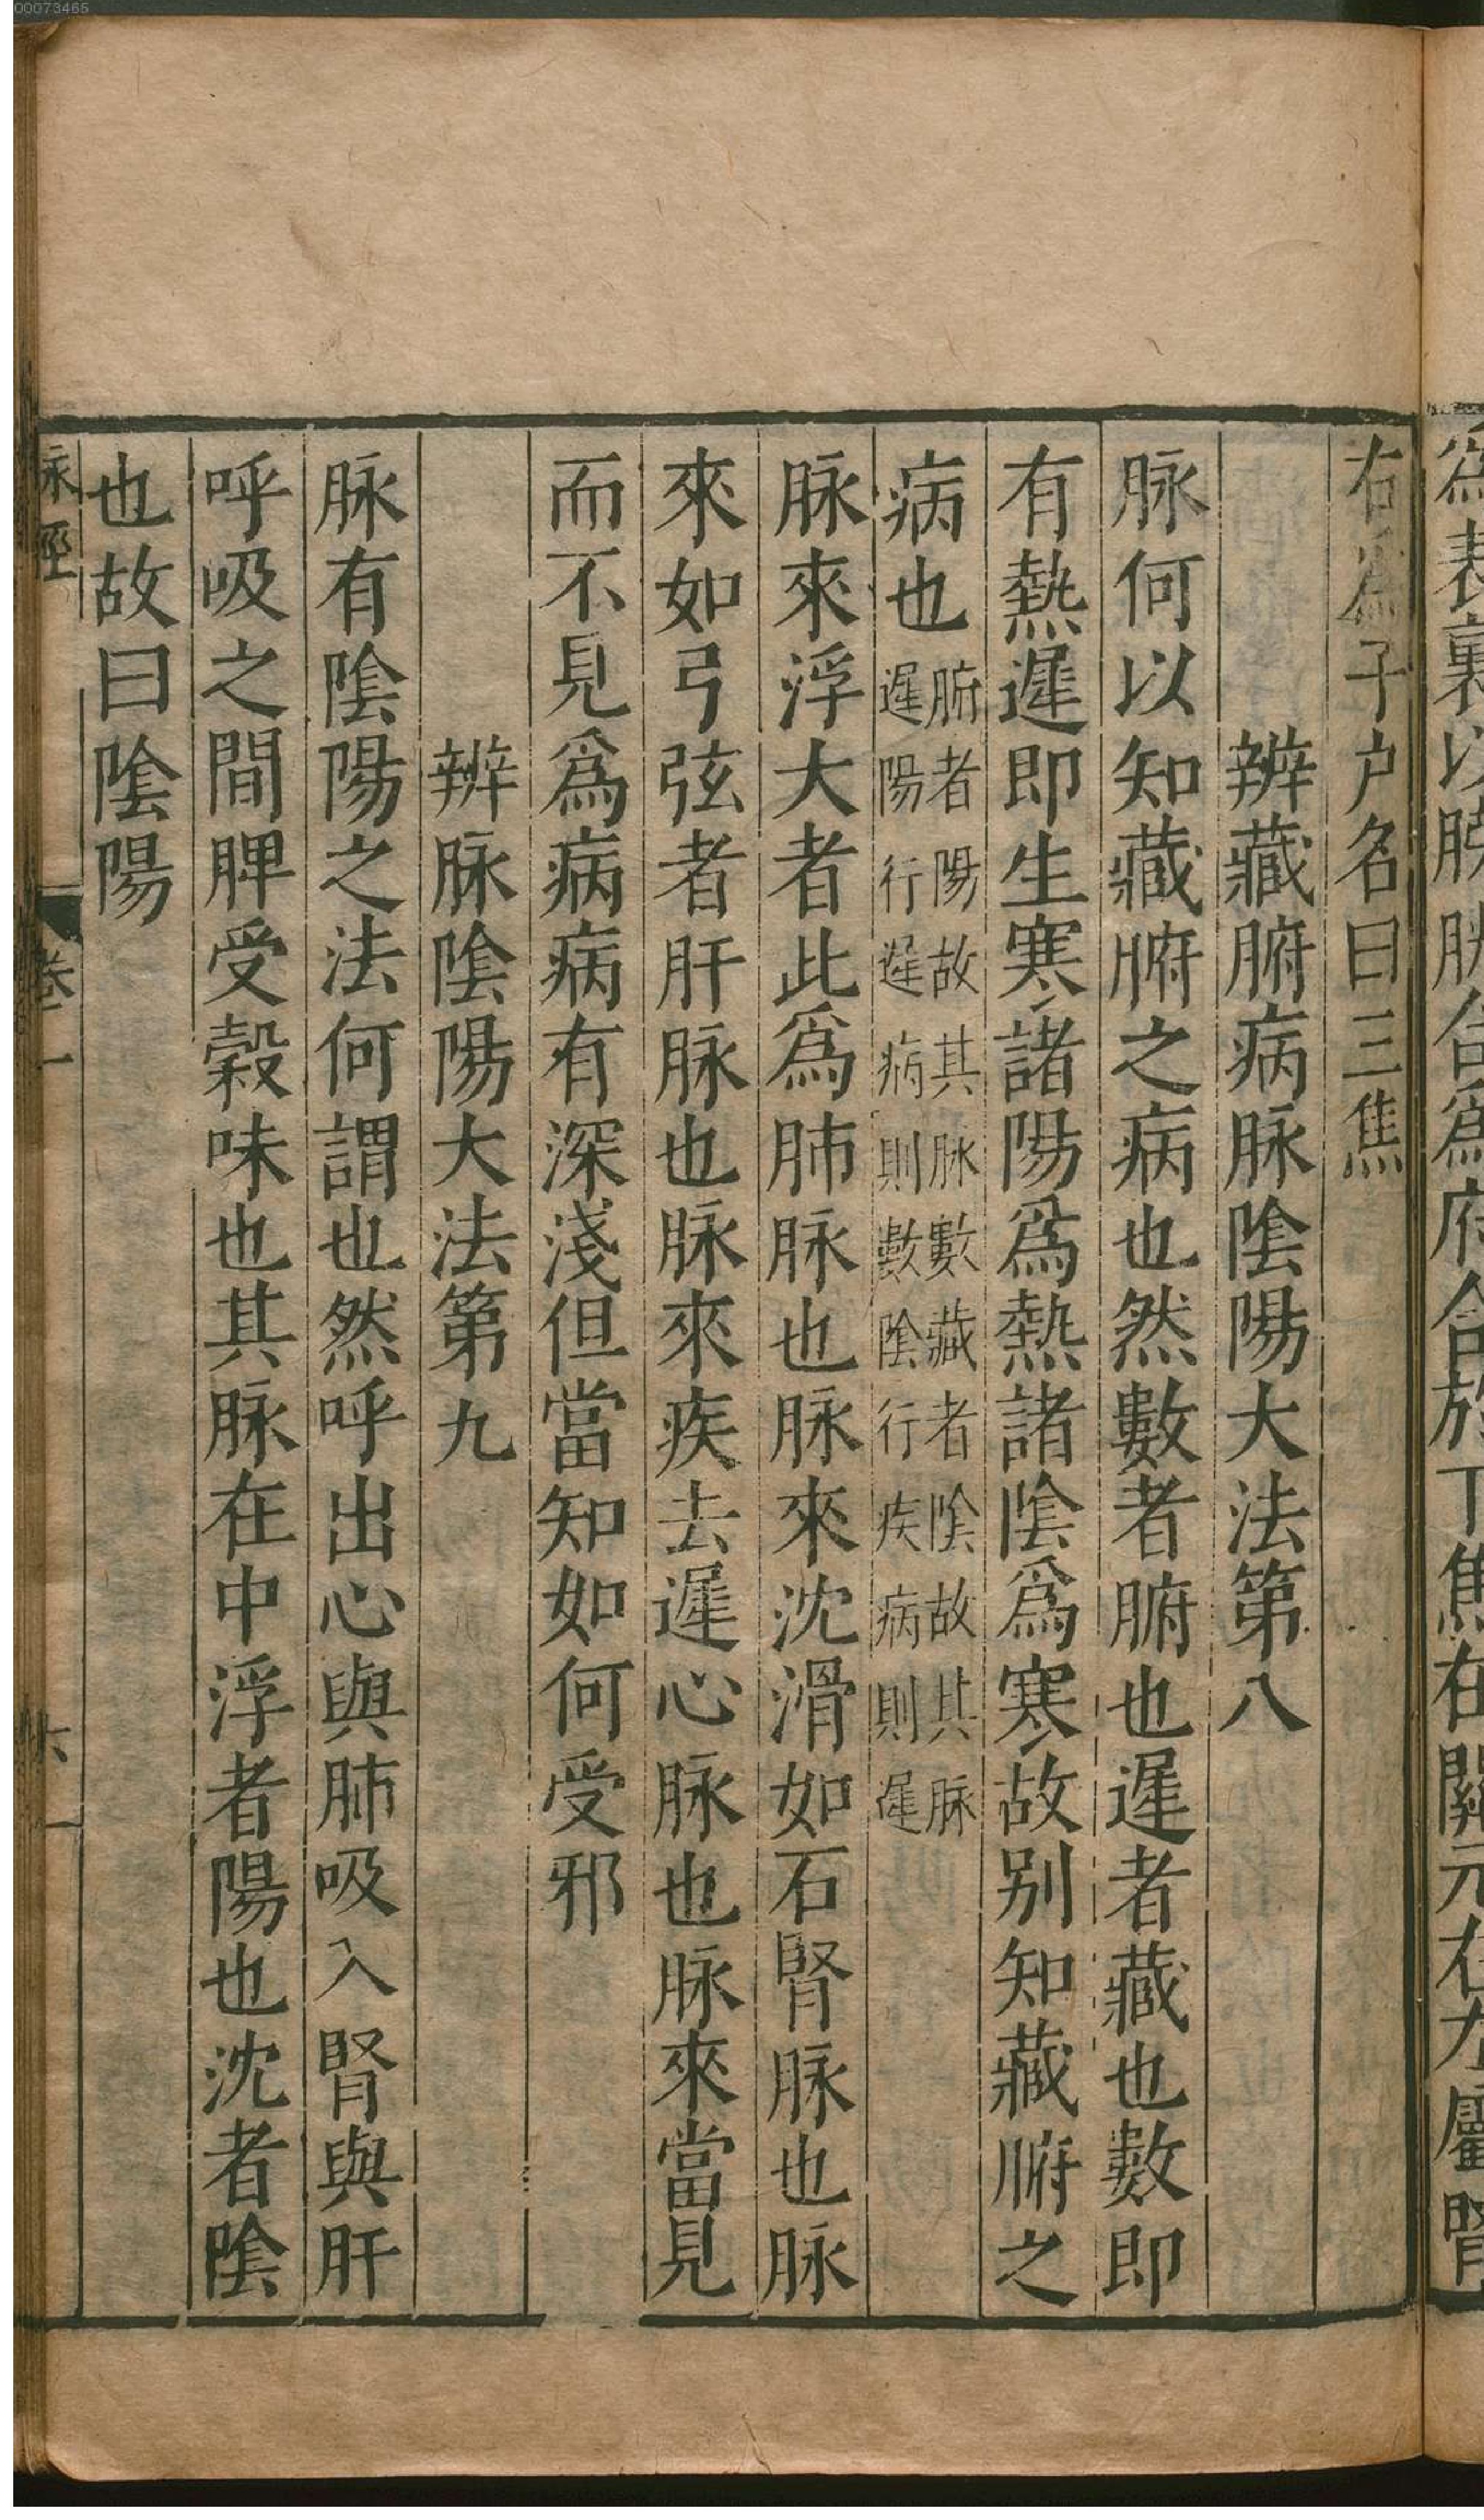 00073465
爲表裏以膀胱合爲府合於下焦在關元右左屬腎
右爲子户名曰三焦
辨藏腑病脉隂陽大法第八
脉何以知藏腑之病也然數者腑也遲者藏也數即
有熱遲即生寒諸陽爲熱諸隂爲寒故别知藏腑之
病也腑者陽故其脉數藏者隂故其脉遲陽行遲病則數隂行疾病則遲
脉來浮大者此爲肺脉也脉來沈滑如石腎脉也脉
來如弓弦者肝脉也脉來疾去遲心脉也脉來當見
而不見爲病病有深淺但當知如何受邪
辨脉隂陽大法第九
脉有隂陽之法何謂也然呼出心與肺吸入腎與肝
呼吸之間脾受穀味也其脉在中浮者陽也沈者隂
也故曰隂陽
脉經 卷一 六